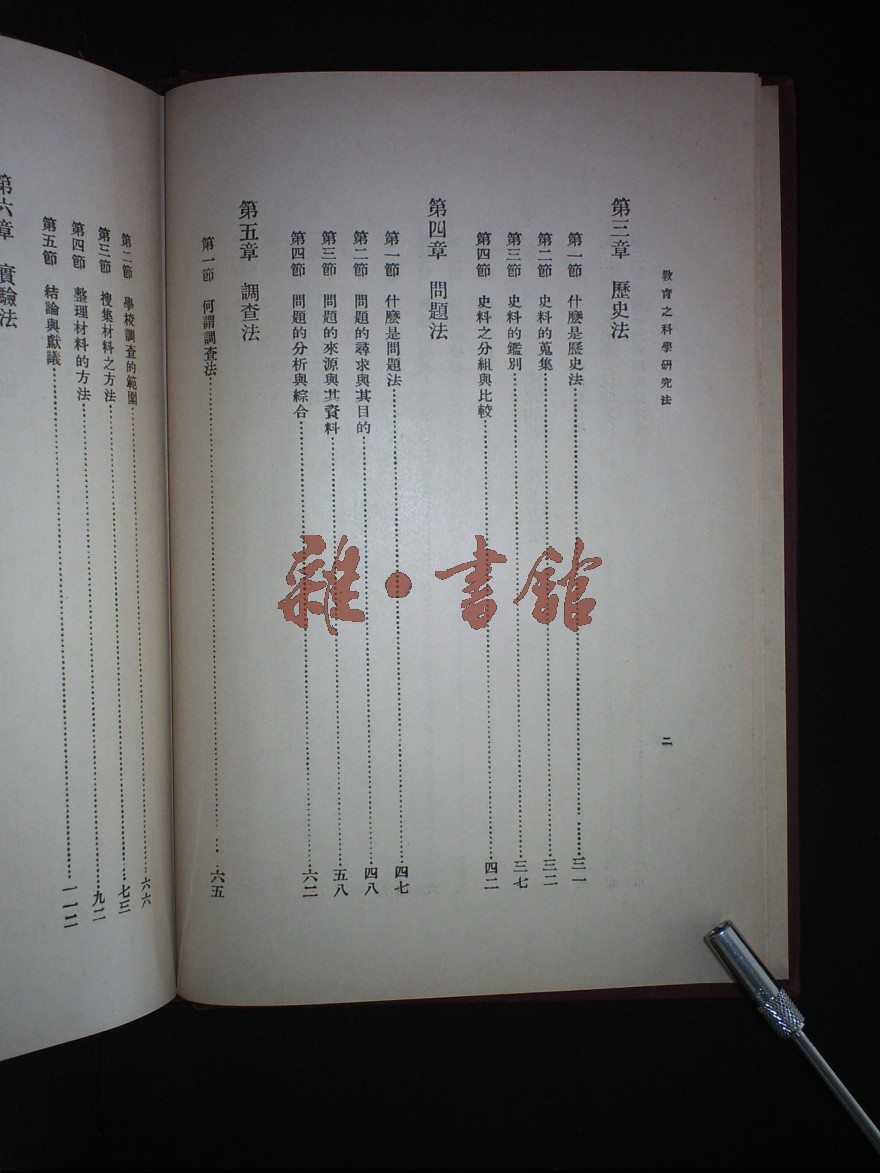 教育之科學研究法
二
第三章 歷史法
第一節 什麼是歷史法 三一
第二節 史料的蒐集 三二
第三節 史料的鑑別 三七
第四節 史料之分組與比較 四二
第四章 問題法
第一節 什麼是問題法 四七
第二節 問題的尋求與其目的 四八
第三節 問題的來源與其資料 五八
第四節 問題的分析與綜合 六二
第五章 調查法
第一節 何謂調查法 六五
第二節 學校調查的範圍 六六
第三節 搜集材料之方法 七三
第四節 整理材料的方法 九二
第五節 結論與獻議 一一二
第六章 實驗法
雜·書館